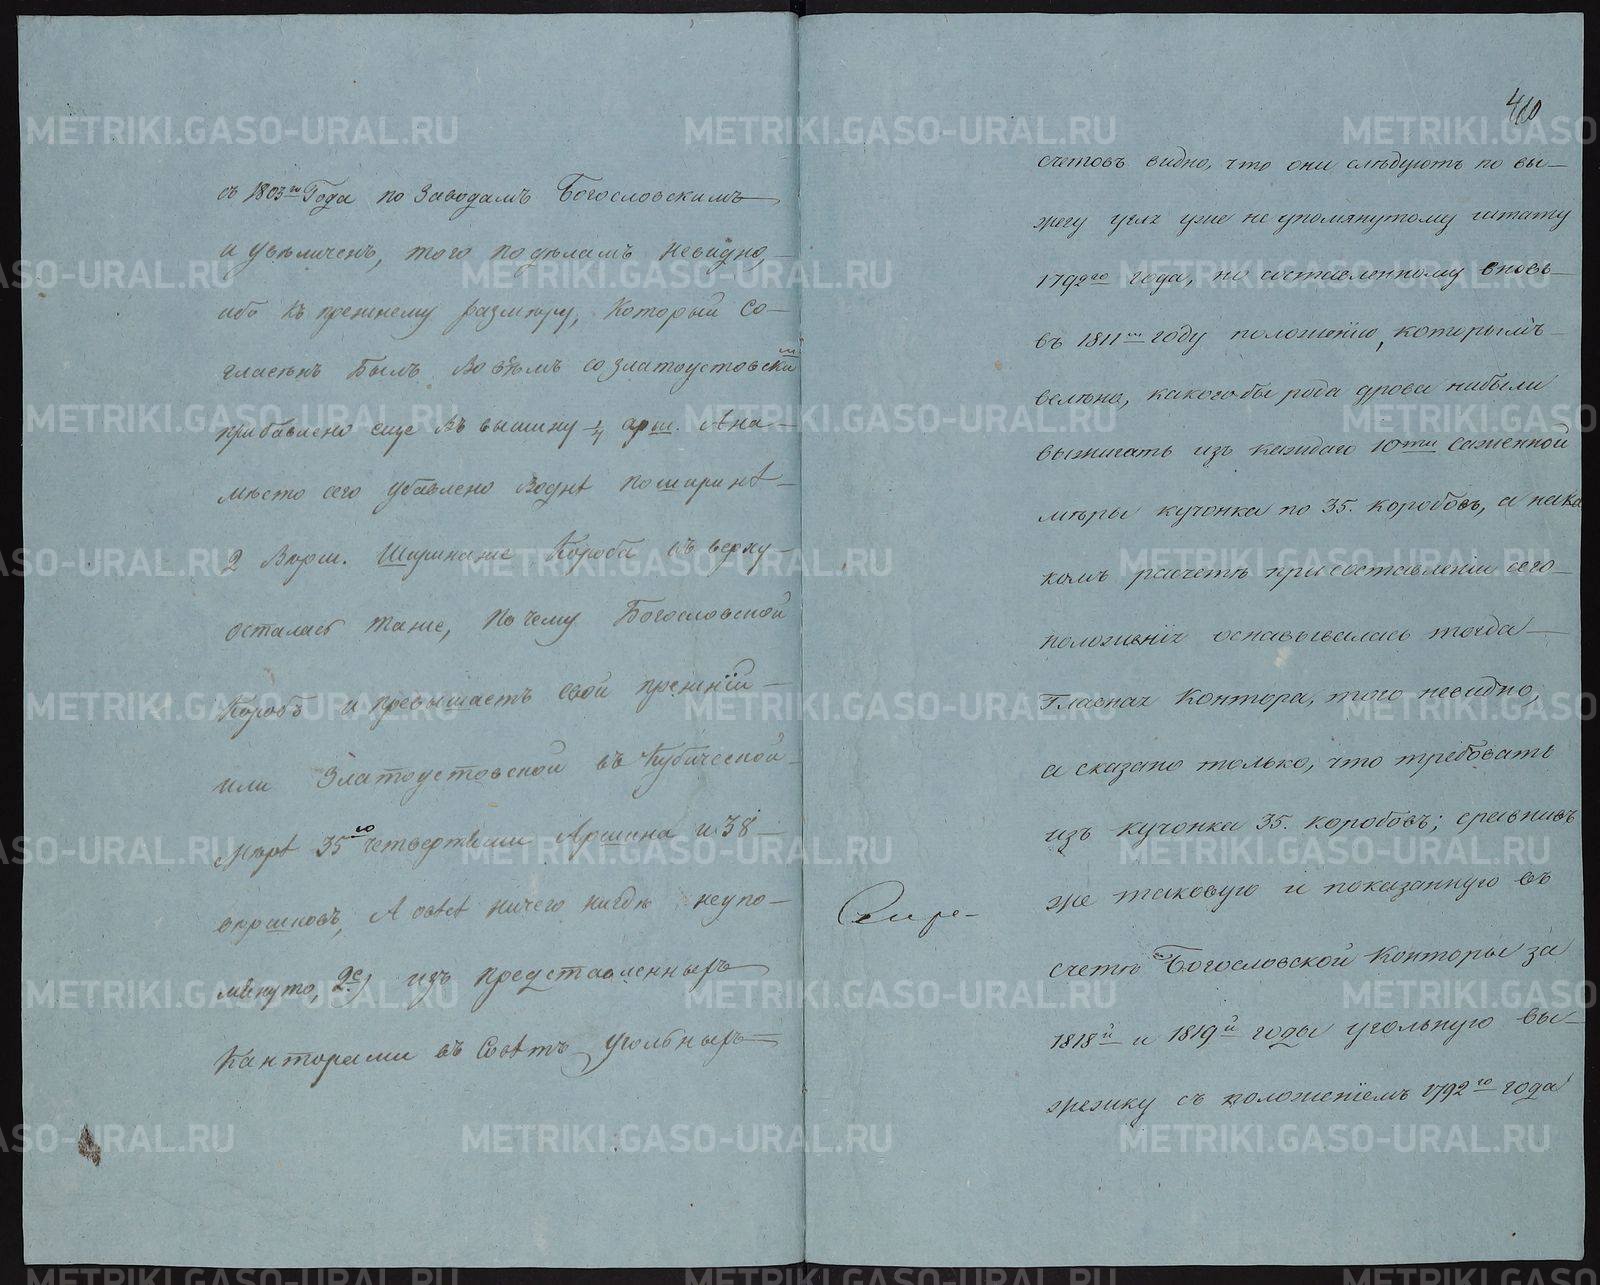 съ 1803го Года по Заводамъ Богословскимъ
и увѣличенъ, того подѣламъ невидно,
ибо къ прежнему размѣру, который со-
гласенъ былъ во всѣмъ со златоустовскимъ
прибавлено еще въ вышину 1/4 арш. А на-
мѣсто сего убавлено во днѣ поширинѣ
2 верш. Ширина же Короба въ верху
осталась также, почему Богословской
Коробъ и превышаетъ свой прежній
или Златоустовской въ Кубической
мѣрѣ 35ю четвертями Аршина и 38
вершковъ, А ничего нигдѣ неупо-
мянуто, 2е) изъ представленныхъ
Канторами въ Совѣтъ угольныхъ
460
счетовъ видно, что они слѣдуютъ по вы-
жегу угля уже не упомянутому штату
1792го года, но составленному вновь
въ 1811мъ году положенію, которымъ
велѣно, какого бы рода дрова нибыли
выжигать изъ каждаго 10ти саженной
мѣры кучонка по 35. коробовъ, а на ка
комъ расчетѣ при составленіи сего
положенія основывалась тогда
Главная Контора, того невидно,
а сказано только, что требовать
изъ кучонка 35. коробовъ; сравнивъ
же таковую и показанную въ
счетѣ Богословской Конторы за
1818й и 1819й годы угольную вы-
жежку съ положеніемъ 1792го года
METRIKI.GASO-URAL.RU